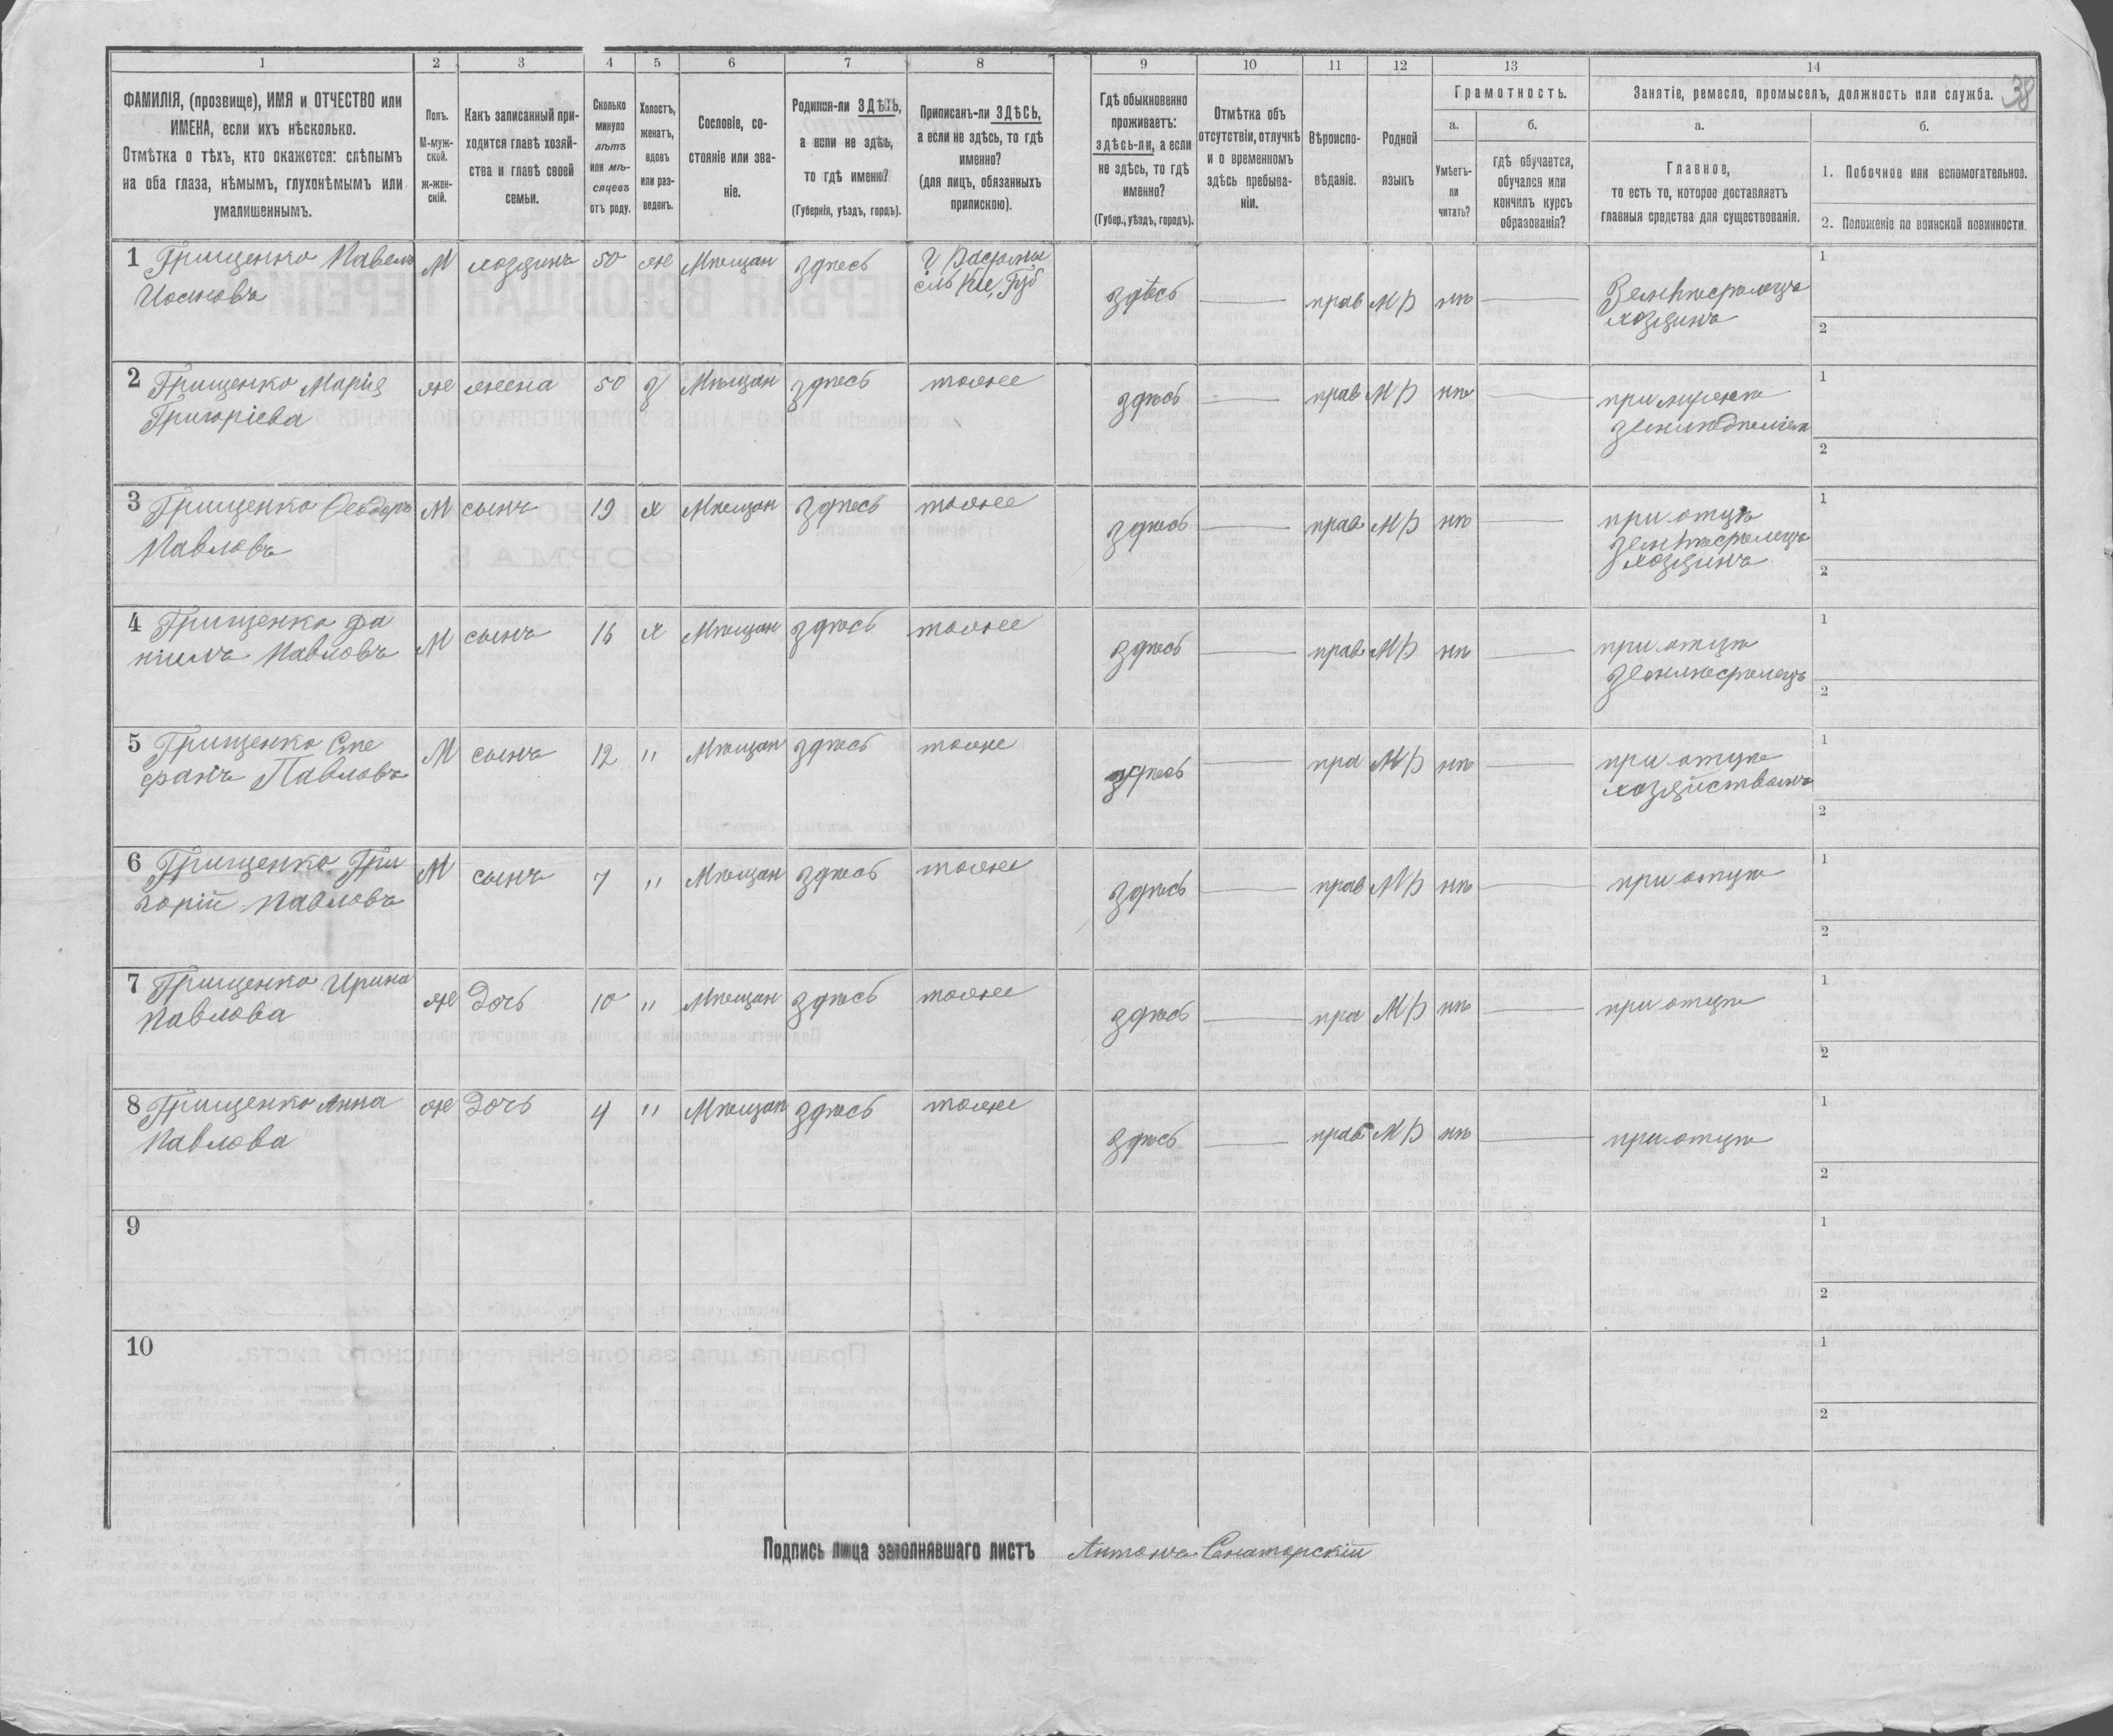 1 2 3 4 5 6 7 8 9 10 11 12 13 14
38
ФАМИЛІЯ, (прозвище), ИМЯ и ОТЧЕСТВО или
ИМЕНА, если ихъ нѣсколько.
Отмѣтка о тѣхъ, кто окажется: слѣпымъ
на оба глаза, нѣмымъ, глухонѣмымъ или
умалишеннымъ.
Полъ.
М-муж-
ской.
ж-жен-
скій.
Какъ записанный при-
ходится главѣ хозяй-
ства и главѣ своей
семьи.
Сколько
минуло
лѣтъ
или мѣ-
сяцевъ
отъ роду.
Холостъ,
женатъ,
вдовъ
или раз-
веденъ.
Сословіе, со-
стояніе или зва-
ніе.
Родился-ли ЗДѢСЬ,
а если не здѣсь,
то гдѣ именно?
(Губернія, уѣздъ, городъ).
Приписанъ-ли ЗДѢСЬ,
а если не здѣсь, то гдѣ
именно?
(для лицъ, обязанныхъ
припискою).
Гдѣ обыкновенно
проживаетъ:
здѣсь-ли, а если
не здѣсь, то гдѣ
именно?
(Губер., уѣздъ, городъ).
Отмѣтка объ
отсутствіи, отлучкѣ
и о временномъ
здѣсь пребыва-
ніи.
Вѣроиспо-
вѣданіе.
Родной
языкъ
Грамотность.
а.
Умѣетъ-
ли
читать?
б.
гдѣ обучается,
обучался или
кончилъ курсъ
образованія?
Занятіе, ремесло, промыселъ, должность или служба.
а.
Главное,
то есть то, которое доставляетъ
главныя средства для существованія.
б.
1. Побочное или вспомогательное.
2. Положеніе по воинской повинности.
1 Грищенко Павелъ М хозяинъ 50 ж Мѣщан здѣсь здѣсь прав МР нѣ Земледѣлецъ 1
хозяинъ 2
2 Грищенко Марія ж жена 50 з Мѣщан здѣсь тоже здѣсь прав МР нѣ 1
Григоріева 2
3 Грищенко Ѳеодоръ М сынъ 19 х Мѣщан здѣсь тоже здѣсь прав МР нѣ при отцѣ 1
Павловъ земледѣлецъ
хозяинъ 2
4 Грищенко Да М сынъ 16 х Мѣщан здѣсь тоже здѣсь прав МР нѣ при отцѣ 1
ніилъ Павловъ земледѣлецъ 2
5 Грищенко Сте М сынъ 12 " Мѣщан здѣсь тоже здѣсь пра МР нѣ при отцѣ 1
фанъ Павловъ хозяйствомъ 2
6 Грищенко Гри М сынъ 7 " Мѣщан здѣсь тоже здѣсь прав МР нѣ при отцѣ 1
горій Павловъ 2
7 Грищенко Ирина ж дочь 10 " Мѣщан здѣсь тоже здѣсь пра МР нѣ при отцѣ 1
Павлова 2
8 Грищенко Анна ж дочь 4 " Мѣщан здѣсь тоже здѣсь прав МР нѣ при отцѣ 1
Павлова 2
9 1
2
10 1
2
Подпись лица заполнявшаго листъ Антонъ Сенаторскій